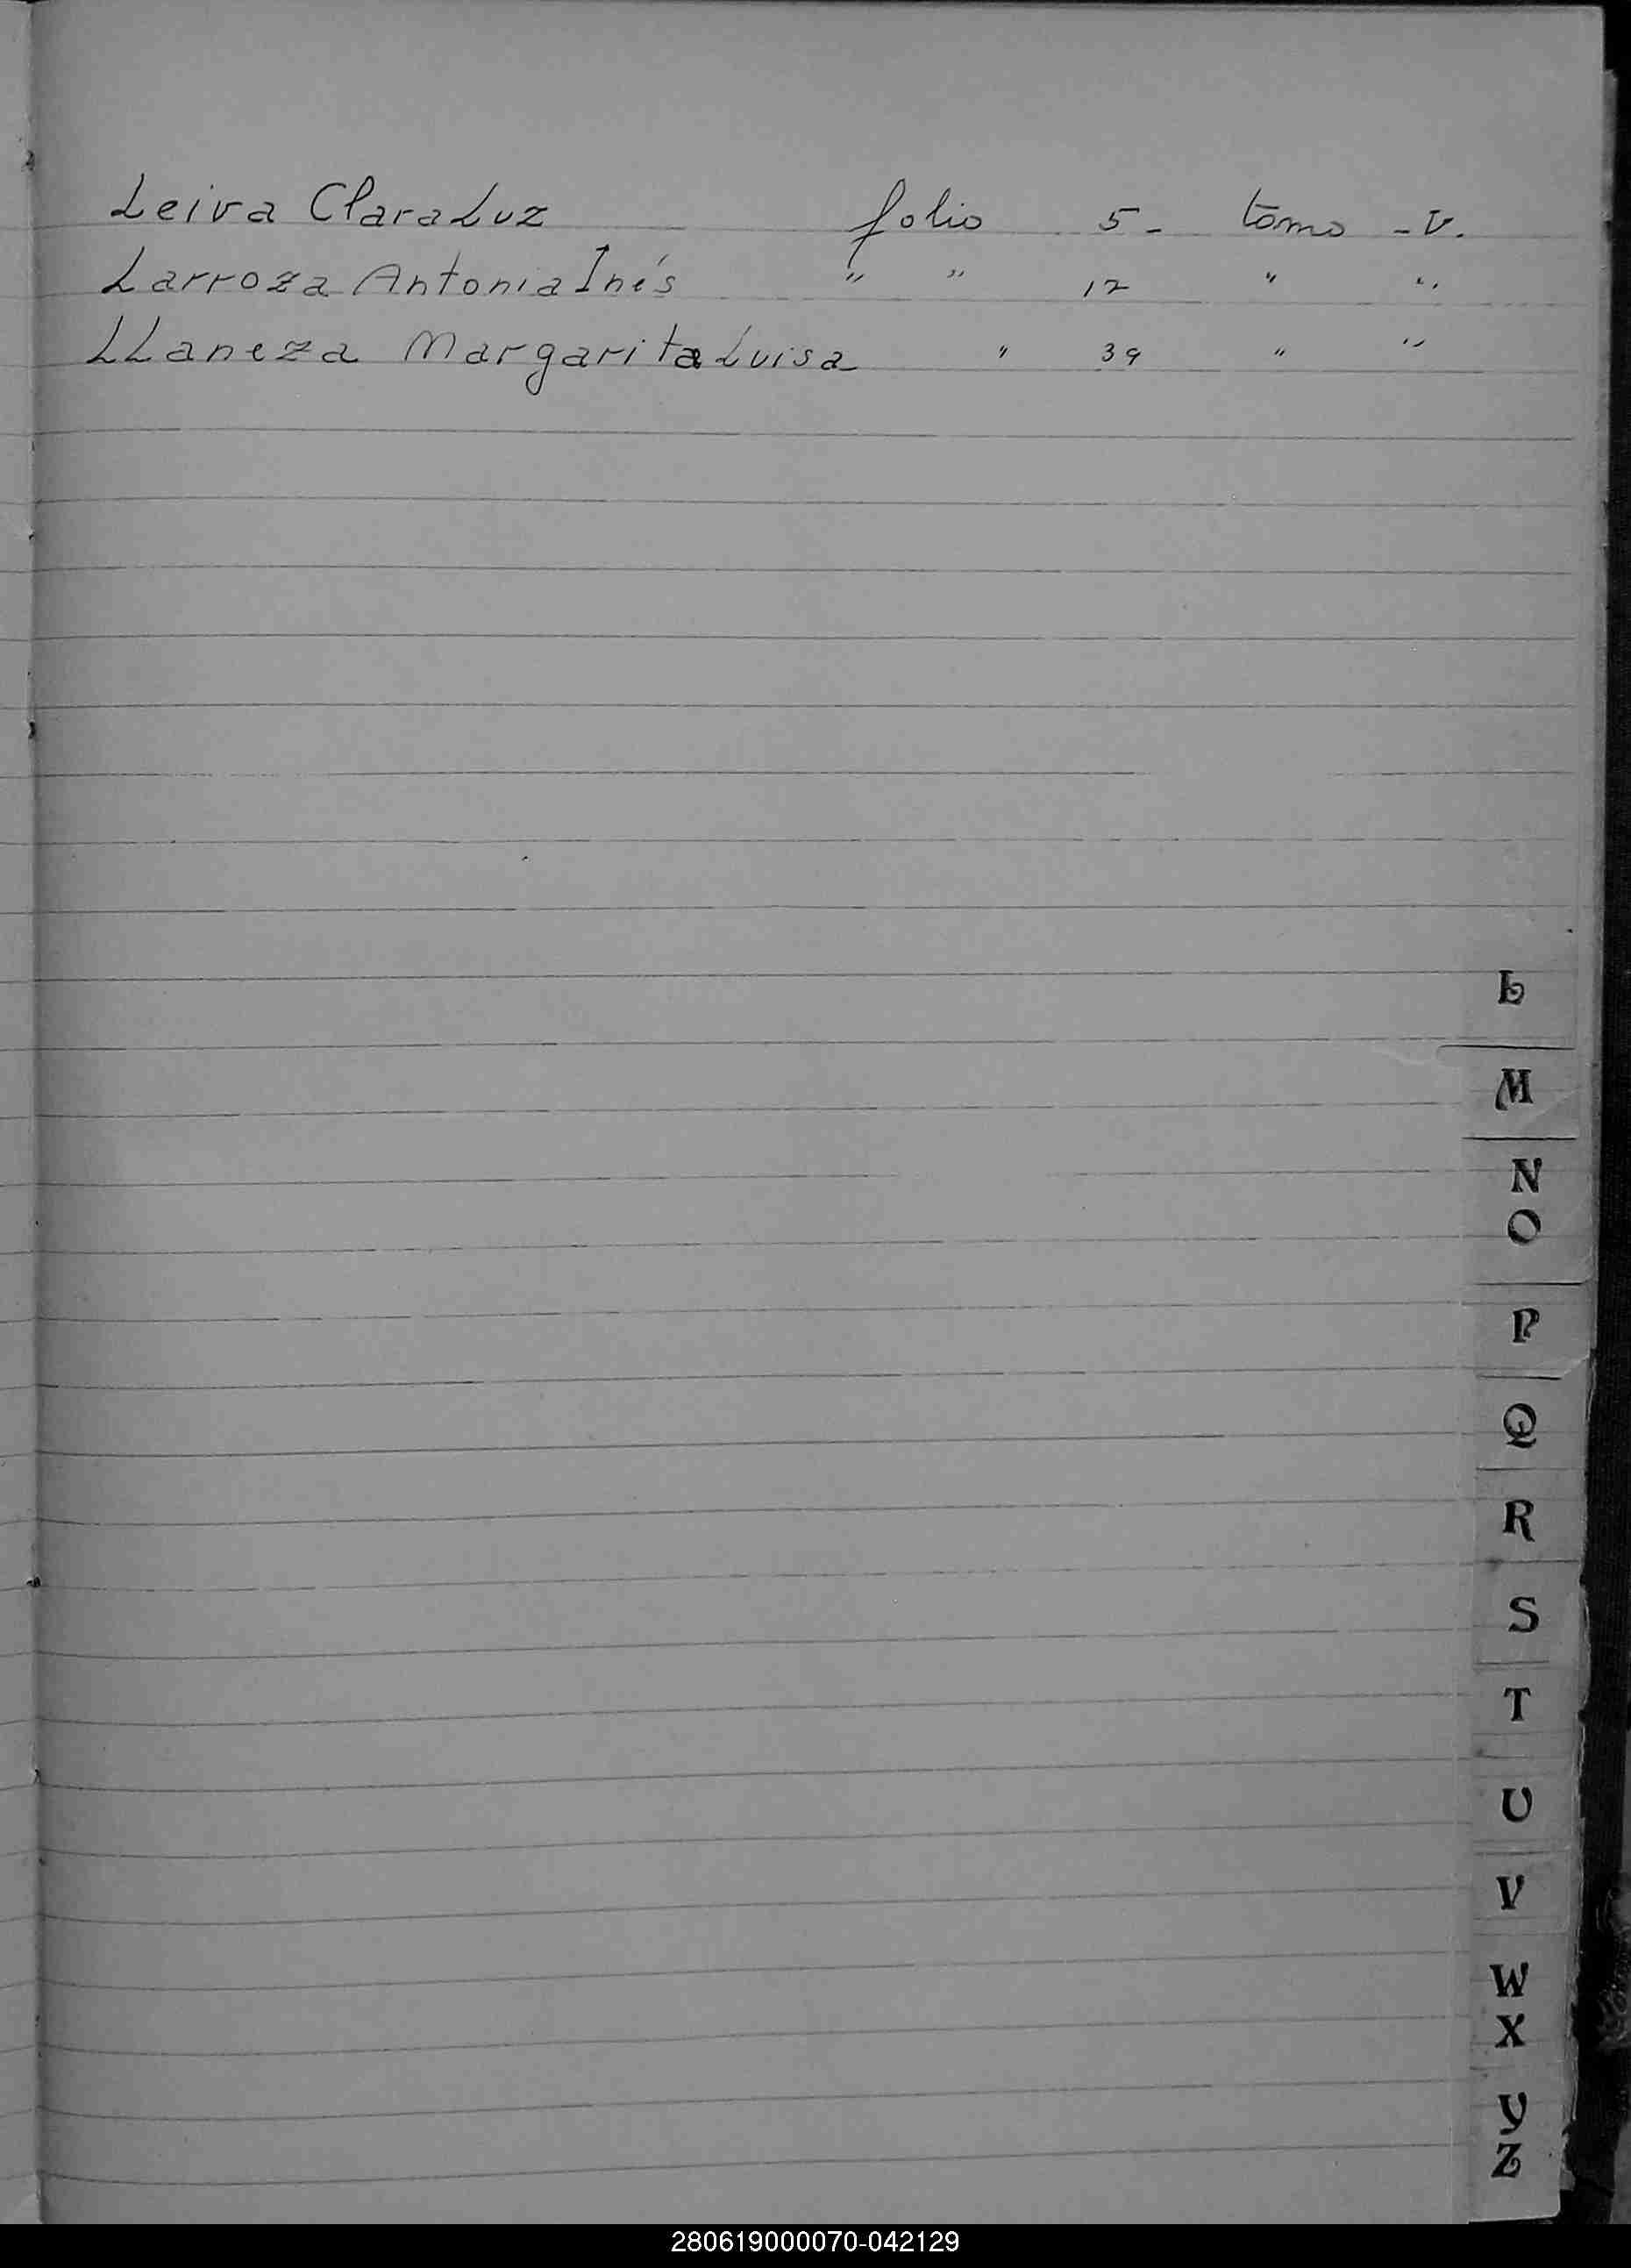 Leiva Clara Luz folio 5- tomo - V.
Larroza Antonia Inés " " 12 " "
LLaneza Margarita Luisa " 39 " "
L
M
N
O
P
Q
R
S
T
U
V
W
X
Y
Z
280619000070-042129